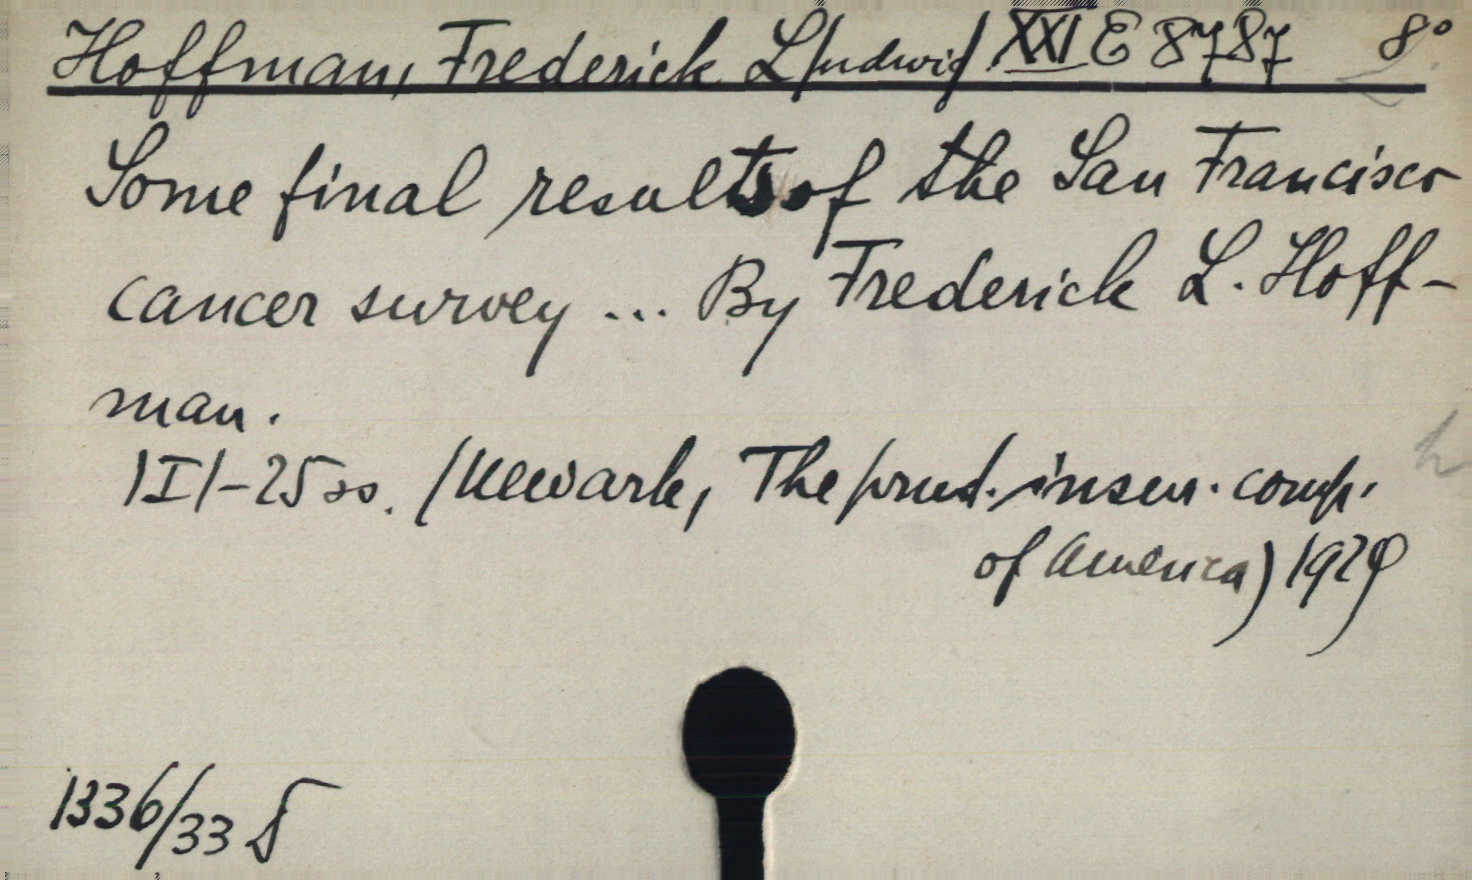 Hoffman, Frederick L/udwig/ XXI E 8787 8°
Some final results of the San Francisco
cancer survey ... By Frederick L. Hoff-
man.
/I/-25 ss. (Newark, The prud. insur. comp.
of America) 1929
1336/33 S
h